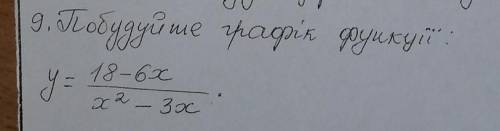 9. Побудуйте графік функції:
y = (18-6x)/(x² - 3x).